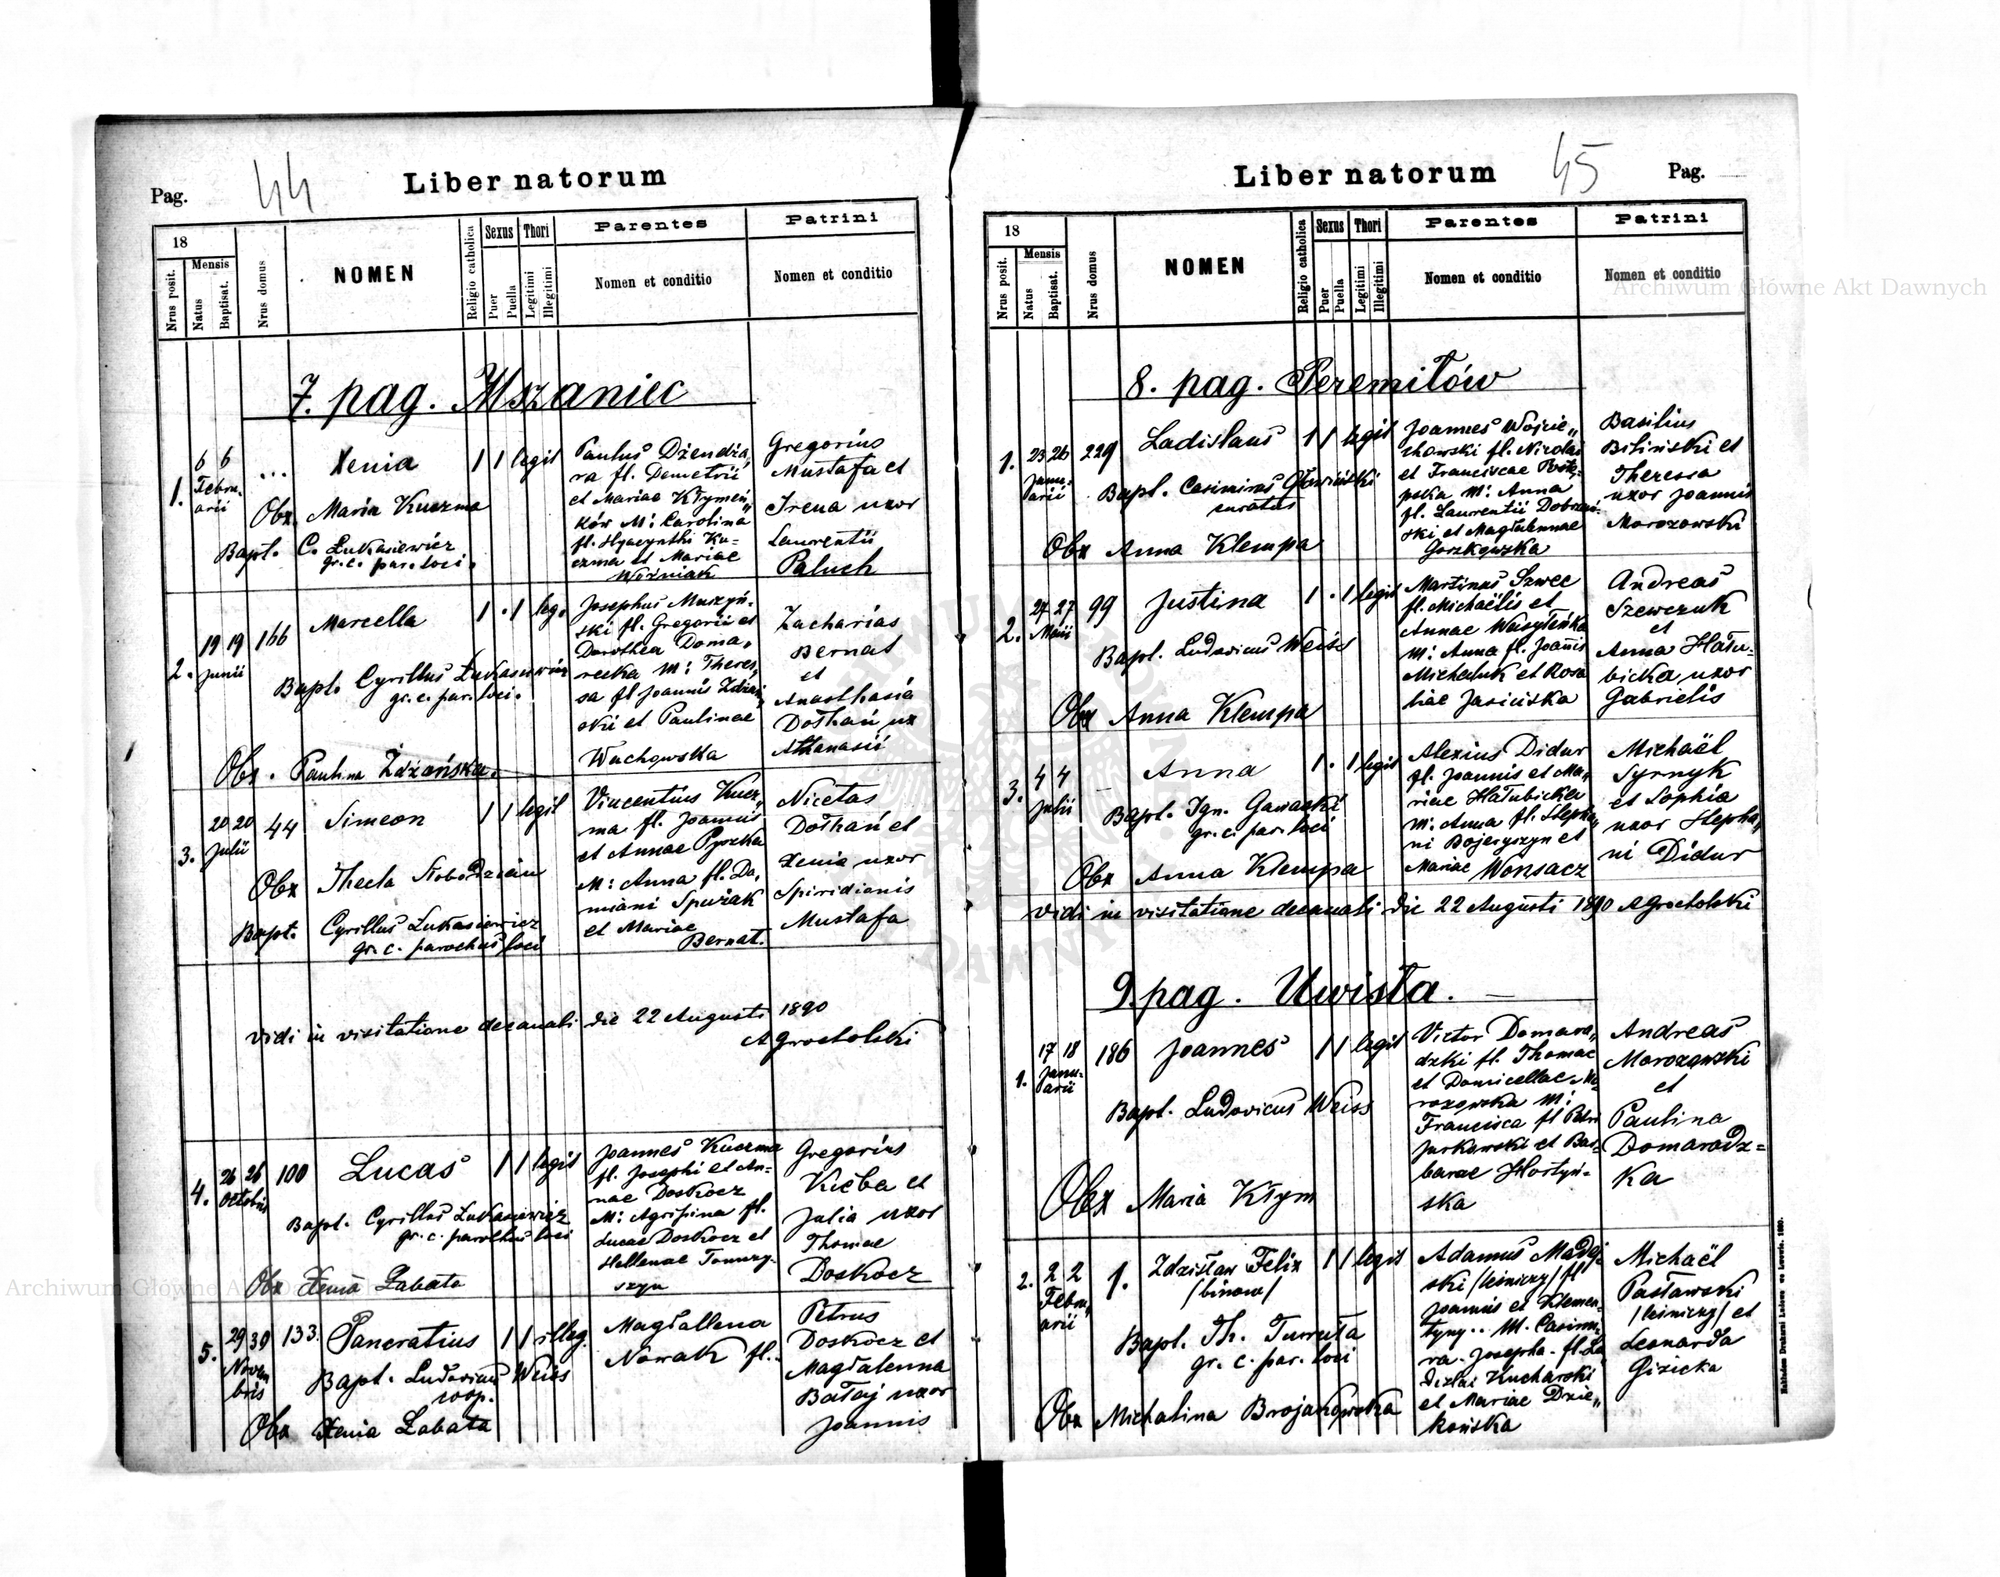 Pag.
44
Liber natorum
18
Nrus posit.
Mensis
Natus
Baptisat.
Nrus domus
NOMEN
Religio catholica
Sexus
Puer
Puella
Thori
Legitimi
Illegitimi
Parentes
Nomen et conditio
Patrini
Nomen et conditio
7. pag. Mszaniec
1.
6 6
Febru-
arii
...
Xenia
1 1 legit
Obx. Maria Kuczma
Bapt. C. Łukasiewicz
gr. c. par. loci.
Paulus Dzendzia,
ra fl. Demetrii
et Mariae Kłymeń„
ków M: Carolina
fl. Hyacynthi Ku-
czma et Mariae
Woźniak
Gregorius
Mustafa et
Irena uxor
Laurentii
Paluch
2.
19 19
Junii
166
Marcella
1 . 1 leg.
Bapt. Cyrillus Łukasiewicz
gr. c. par. loci.
Obx. Paulina Żdżańska.
Josephus Muszyń-
ski fl. Gregorii et
Dorothea Doma,
recka M: There,
sa fl Joannis Zdżań„
ski et Paulinae
Wachowska
Zacharias
Bernat
et
Anasthasia
Dołhań ux
Athanasii
3.
20 20
Julii
44
Simeon
1 1 legit
Obx Thecla Słobodzian
Bapt. Cyrillus Łukasiewicz
gr. c. parochus loci
Vincentius Kucz„
ma fl. Joannis
et Annae Pyszka
M: Anna fl. Da,
miani Spiwak
et Mariae
Bernat.
Nicetas
Dołhań et
Xenia uxor
Spiridianis
Mustafa
Vidi in visitatione decanali die 22 Augusti 1890
A Grocholski
4.
26 26
Octobris
100
Lucas
1 1 legit
Bapt. Cyrillus Łukasiewicz
gr. c. parochus loci
Obx Xenia Łabata
Joannes Kuczma
fl. Josephi et An-
nae Doskocz
M: Agripina fl.
Lucae Doskocz et
Hellenae Tomczy-
szyn
Gregorius
Kiċba et
Julia uxor
Thomae
Doskocz
5.
29 30
Novem
bris
133.
Pancratius
1 1 illeg.
Bapt. Ludovicus Weiss
coop.
Obx Xenia Łabata
Magdallena
Nowak fl..
Petrus
Doskocz et
Magdalenna
Bałaj uxor
Joannis
Liber natorum
45
Pag.
18
Nrus posit.
Mensis
Natus
Baptisat.
Nrus domus
NOMEN
Religio catholica
Sexus
Puer
Puella
Thori
Legitimi
Illegitimi
Parentes
Nomen et conditio
Patrini
Nomen et conditio
8. pag. Peremiłów
1.
23 26
Janu-
arii
229
Ladislaus
1 1 legit
Bapt. Casimirus Głowiński
curatus
Obx Anna Klempa
Joannes Wojcie„
chowski fl. Nicolai
et Franciscae Postę-
pska M: Anna
fl. Laurentii Dobrzań-
ski et Magdalennae
Gorzkowska
Basilius
Biliński et
Theressa
uxor Joannis
Morozowski
2.
27 27
Maii
99
Justina
1 . 1 legit
Bapt. Ludovicus Weiss
Obx Anna Klempa
Martinus Szwec
fl. Michaëlis et
Annae Wasyleńka
M: Anna fl. Joanis
Michaluk et Rosa
liae Jasicńska
Andreas
Szewczuk
et
Anna Hału-
bicka uxor
Gabrielis
3.
4 4
Julii
Anna
1 . 1 legit
Bapt. Ign. Gawacki
gr. c. par. loci
Obx Anna Klempa
Alexius Didur
fl. Joannis et Ma„
riae Hałubicka
M: Anna fl. Stepha,
ni Bojeryszyn et
Mariae Wonsacz
Michaël
Syrnyk
et Sophia
uxor Stepha„
ni Didur
Vidi in visitatione decanali die 22 Augusti 1890 A Grocholski
9. pag. Uwisła.
1.
17 18
Janu-
arii
186
Joannes
1 1 legit
Bapt. Ludovicus Weiss
Obx Maria Kłym
Victor Domara„
dzki fl. Thomae
et Domicellae Mo
rozowska M:
Francisca fl Petri
Jurkowski et Bar-
barae Hortyń-
ska
Andreas
Morozowski
et
Paulina
Domaradz=
ka
2.
2 2
Febru„
arii
1.
Zdzisław Felix
/binom/
1 1 legit
Bapt. Th. Turuła
gr. c. par. loci
Obx Michalina Brojakowska
Adamus Madej-
ski /leśniczy/ fl
Joannis et Klemen-
tyny.. M. Casimi-
ra-Josepha-fl. La
dizlai Kucharski
et Mariae Dzie„
końska
Michaël
Pasławski
/leśniczy/ et
Leonarda
Gizicka
Nakładem Drukarni Ludowej we Lwowie. 1880.
Archiwum Główne Akt Dawnych
Archiwum Główne Akt Dawnych